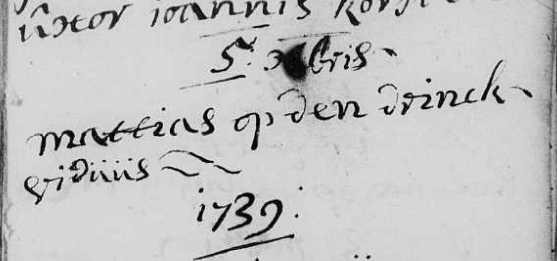 uxor ioannis
5.
mattias op den drinck
viduus
1739.